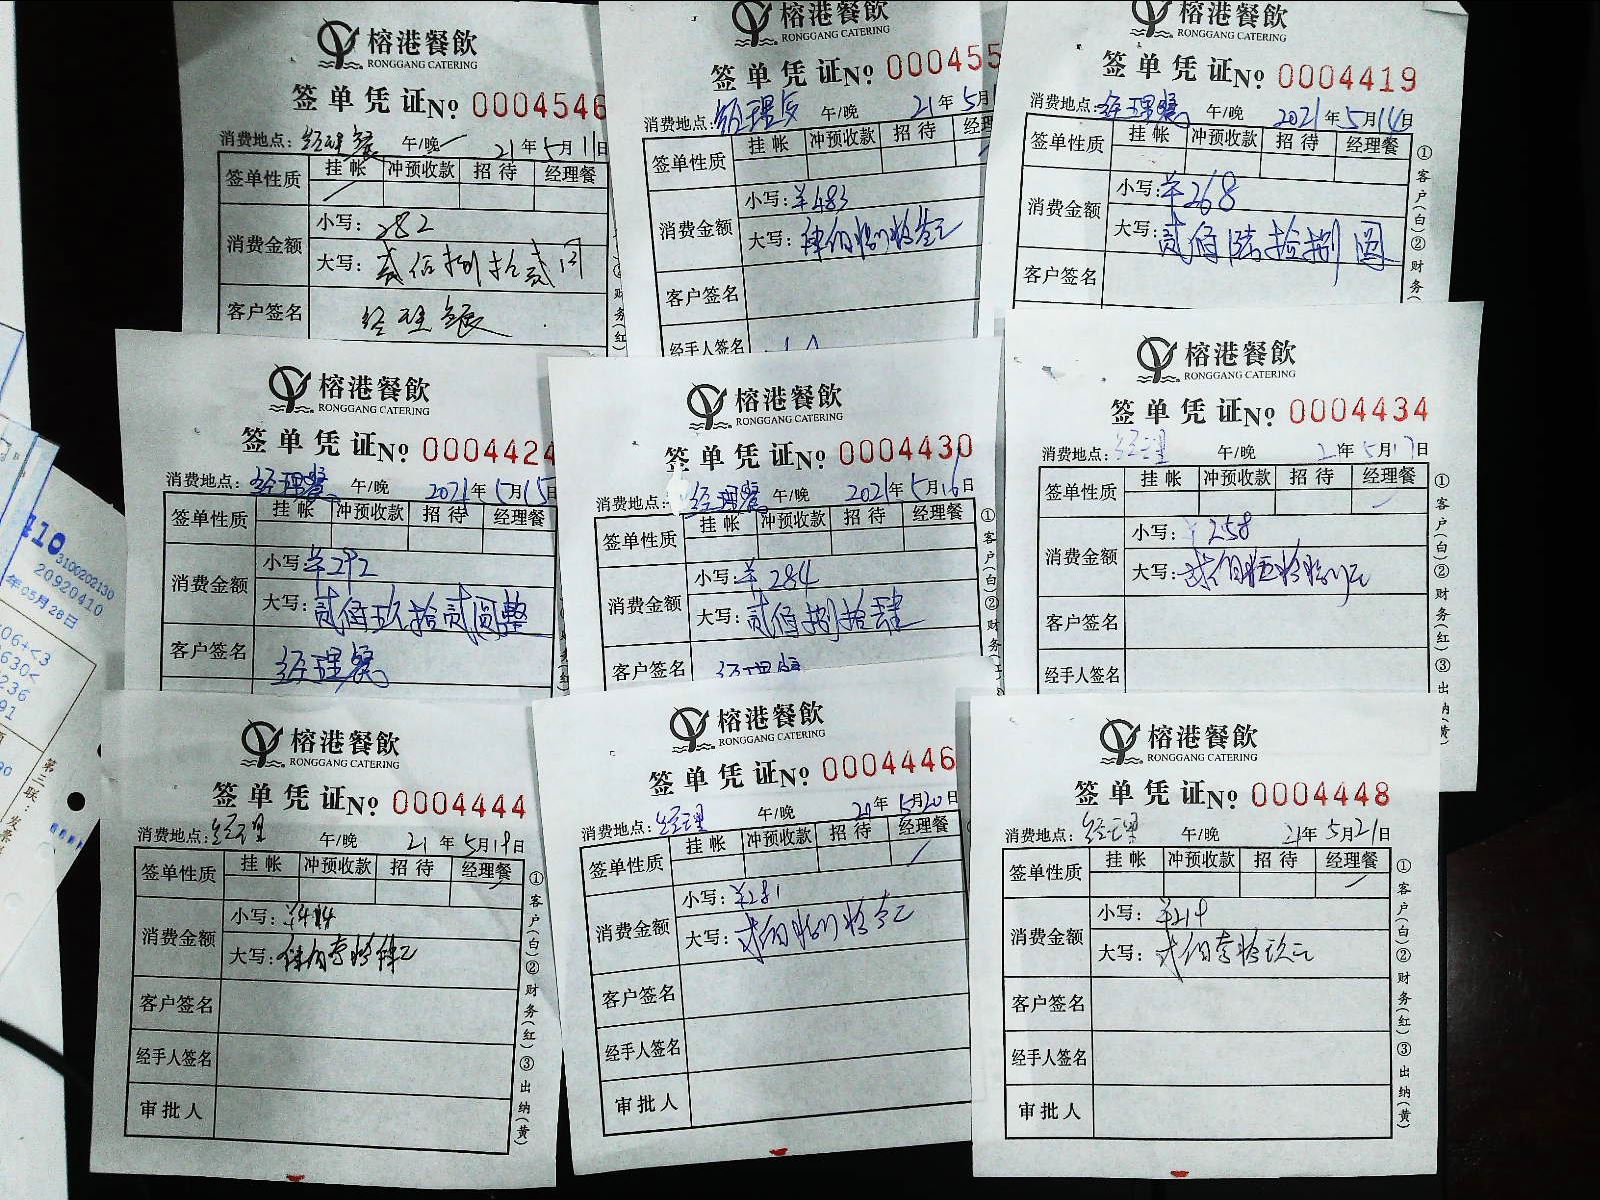 榕港餐飲
RONGGANG CATERING
签单凭证 No 0004546
消费地点: 经理餐 午/晚 21年5月11日
签单性质 挂帐 冲预收款 招待 经理餐
消费金额 小写: 282
大写: 贰佰捌拾贰圆
客户签名 经理餐
榕港餐飲
RONGGANG CATERING
签单凭证 No 000455
消费地点: 经理 午/晚 21年5月1
签单性质 挂帐 冲预收款 招待 经理
消费金额 小写: ¥483
大写: 肆佰捌拾叁元
客户签名
经手人签名
榕港餐飲
RONGGANG CATERING
签单凭证 No 0004419
消费地点: 经理餐 午/晚 2021年5月14日
签单性质 挂帐 冲预收款 招待 经理餐
消费金额 小写: ¥268
大写: 贰佰陆拾捌圆
客户签名
①客户(白)②财务(
财务(红)
榕港餐飲
RONGGANG CATERING
签单凭证 No 0004424
消费地点: 经理餐 午/晚 2021年5月15日
签单性质 挂帐 冲预收款 招待 经理餐
消费金额 小写: ¥292
大写: 贰佰玖拾贰圆整
客户签名 经理餐
榕港餐飲
RONGGANG CATERING
签单凭证 No 0004430
消费地点: 经理餐 午/晚 2021年5月16日
签单性质 挂帐 冲预收款 招待 经理餐
消费金额 小写: ¥284
大写: 贰佰捌拾肆
客户签名 经理餐
①客户(白)②财务(红)
榕港餐飲
RONGGANG CATERING
签单凭证 No 0004434
消费地点: 经理 午/晚 21年5月17日
签单性质 挂帐 冲预收款 招待 经理餐
消费金额 小写: ¥258
大写: 贰佰伍拾捌元
客户签名
经手人签名
①客户(白)②财务(红)③出纳(黄)
榕港餐飲
RONGGANG CATERING
签单凭证 No 0004444
消费地点: 经理 午/晚 21年5月19日
签单性质 挂帐 冲预收款 招待 经理餐
消费金额 小写: ¥414
大写: 肆佰壹拾肆元
客户签名
经手人签名
审批人
①客户(白)②财务(红)③出纳(黄)
榕港餐飲
RONGGANG CATERING
签单凭证 No 0004446
消费地点: 经理 午/晚 21年5月20日
签单性质 挂帐 冲预收款 招待 经理餐
消费金额 小写: ¥281
大写: 贰佰捌拾壹元
客户签名
经手人签名
审批人
榕港餐飲
RONGGANG CATERING
签单凭证 No 0004448
消费地点: 经理 午/晚 21年5月21日
签单性质 挂帐 冲预收款 招待 经理餐
消费金额 小写: ¥219
大写: 贰佰壹拾玖元
客户签名
经手人签名
审批人
①客户(白)②财务(红)③出纳(黄)
3100202130
20920410
年05月28日
06+<3
630<
236
91
第三联:发票